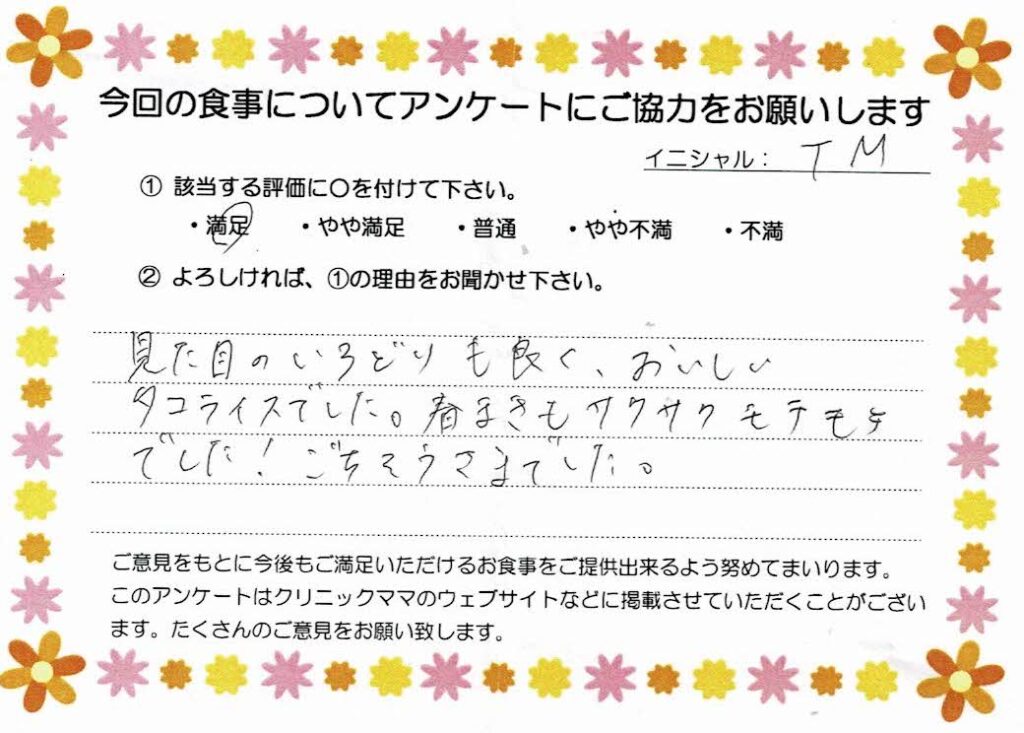 今回の食事についてアンケートにご協力をお願いします
イニシャル： TM
① 該当する評価に〇を付けて下さい。
・満足 ・やや満足 ・普通 ・やや不満 ・不満
② よろしければ、①の理由をお聞かせ下さい。
見た目のいろどりも良く、おいしい
タコライスでした。春まきもサクサクモチモチ
でした！ごちそうさまでした。
ご意見をもとに今後もご満足いただけるお食事をご提供出来るよう努めてまいります。
このアンケートはクリニックママのウェブサイトなどに掲載させていただくことがござい
ます。たくさんのご意見をお願い致します。